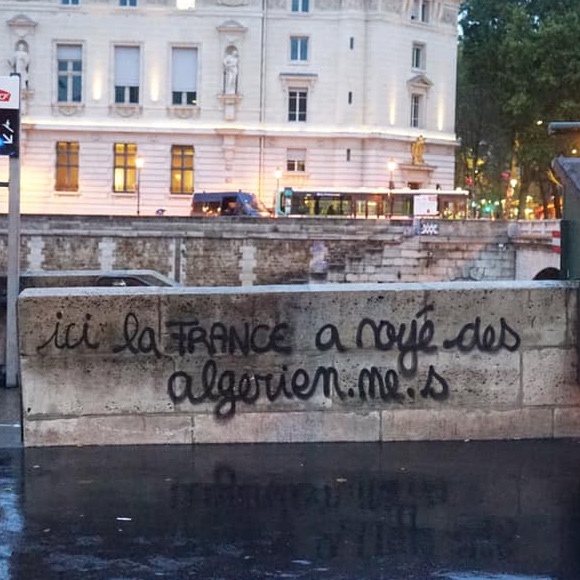 ici la FRANCE a noyé des
algerien.ne.s